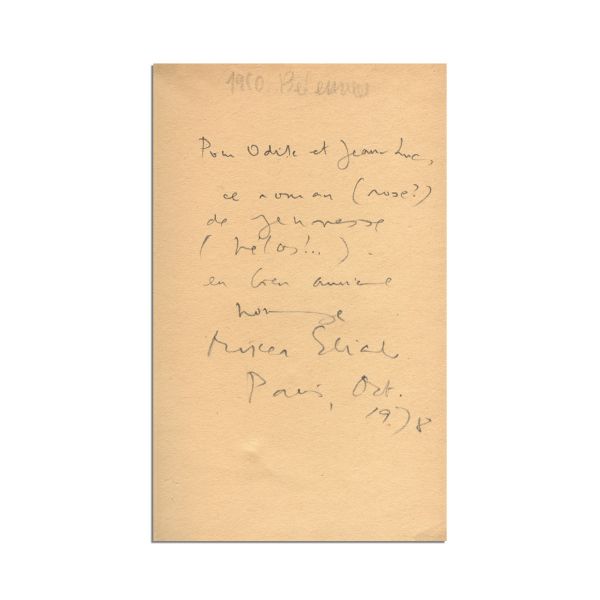 1950
Pour Odile et Jean-Luc,
ce roman (rose?)
de jeunesse
(hélas!...).
en bien amical
hommage
Mircea Eliade
Paris, Oct.
1978